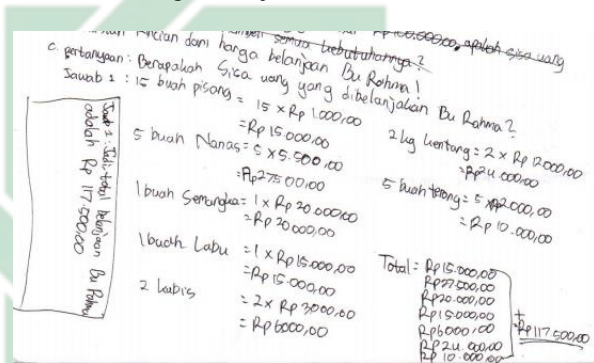 semua kebutuhannya? Rp 150.500,00, apakah sisa uang
Rincian dari harga belanjaan Bu Rahma!
C. pertanyaan: Berapakah Sisa uang yang dibelanjakan Bu Rahma?
Jawab 1 : 15 buah pisang = 15 x Rp 1.000,00
= Rp 15.000,00
5 buah Nanas = 5 x 5.500,00
= Rp 27500,00
1 buah Semangka = 1 x Rp 20.000,00
= Rp 20000,00
1 buah Labu = 1 x Rp 15.000,00
= Rp 15.000,00
2 kubis = 2 x Rp 3000,00
= Rp 6000,00
2 kg kentang = 2 x Rp 12000,00
= Rp 24.000,00
5 buah terong = 5 x Rp 2000,00
= Rp 10.000,00
Total = Rp 15.000,00
Rp 27.500,00
Rp 20.000,00
Rp 15.000,00
Rp 6000,00
Rp 24.000,00
Rp 10.000,00
+
= Rp 117.500,00
Jawab 1 : Jadi total belanjaan Bu Rahma
adalah Rp 117.500,00